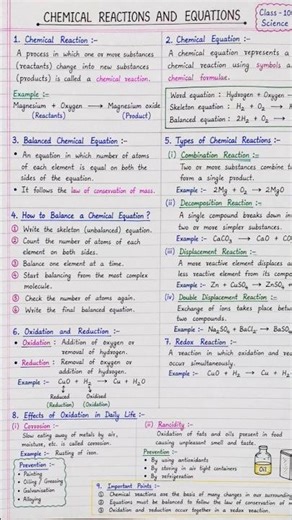 CHEMICAL REACTIONS AND EQUATIONS
Class-10
Science
1. Chemical Reaction :-
A process in which one or more substances
(reactants) change into new substances
(products) is called a chemical reaction.
Example :-
Magnesium + Oxygen → Magnesium oxide
(Reactants) (Product)
2. Chemical Equation :-
A chemical equation represents a
chemical reaction using symbols a
chemical formulae.
Word equation : Hydrogen + Oxygen -
Skeleton equation : H₂ + O₂ → H
Balanced equation : 2H₂ + O₂ →
3. Balanced Chemical Equation :-
• An equation in which number of atoms
of each element is equal on both the
sides of the equation.
• It follows the law of conservation of mass.
4. How to Balance a Chemical Equation ?
① Write the skeleton (unbalanced) equation.
② Count the number of atoms of each
element on both sides.
③ Balance one element at a time.
④ Start balancing from the most complex
molecule.
⑤ Check the number of atoms again.
⑥ Write the final balanced equation.
5. Types of Chemical Reactions :-
(i) Combination Reaction :-
Two or more substances combine t
form a single product.
Example :- 2Mg + O₂ → 2MgO
(ii) Decomposition Reaction :-
A single compound breaks down in
two or more simpler substances.
Example :- CaCO₃ → CaO + CO
(iii) Displacement Reaction :-
A more reactive element displaces a
less reactive element from its compo
Example :- Zn + CuSO₄ → ZnSO₄ +
(iv) Double Displacement Reaction :-
Exchange of ions takes place betw
two compounds.
Example :- Na₂SO₄ + BaCl₂ → BaSO₄
6. Oxidation and Reduction :-
• Oxidation : Addition of oxygen or
removal of hydrogen.
• Reduction : Removal of oxygen or
addition of hydrogen.
Example :- CuO + H₂ → Cu + H₂O
Reduced Oxidised
(Reduction) (Oxidation)
7. Redox Reaction :-
A reaction in which oxidation and re
occur simultaneously.
Example :- CuO + H₂ → Cu + H
8. Effects of Oxidation in Daily Life :-
(i) Corrosion :-
Slow eating away of metals by air,
moisture, etc. is called corrosion.
Example :- Rusting of iron.
Prevention :-
• Painting
• Oiling / Greasing
• Galvanisation
• Alloying
(ii) Rancidity :-
Oxidation of fats and oils present in food
causing unpleasant smell and taste.
Prevention :-
• By using antioxidants
• By storing in air tight containers
• By refrigeration
Oil
9. Important Points :-
① Chemical reactions are the basis of many changes in our surrounding
② Equations must be balanced to follow the law of conservation of m
③ Oxidation and reduction occur together in a redox reaction.